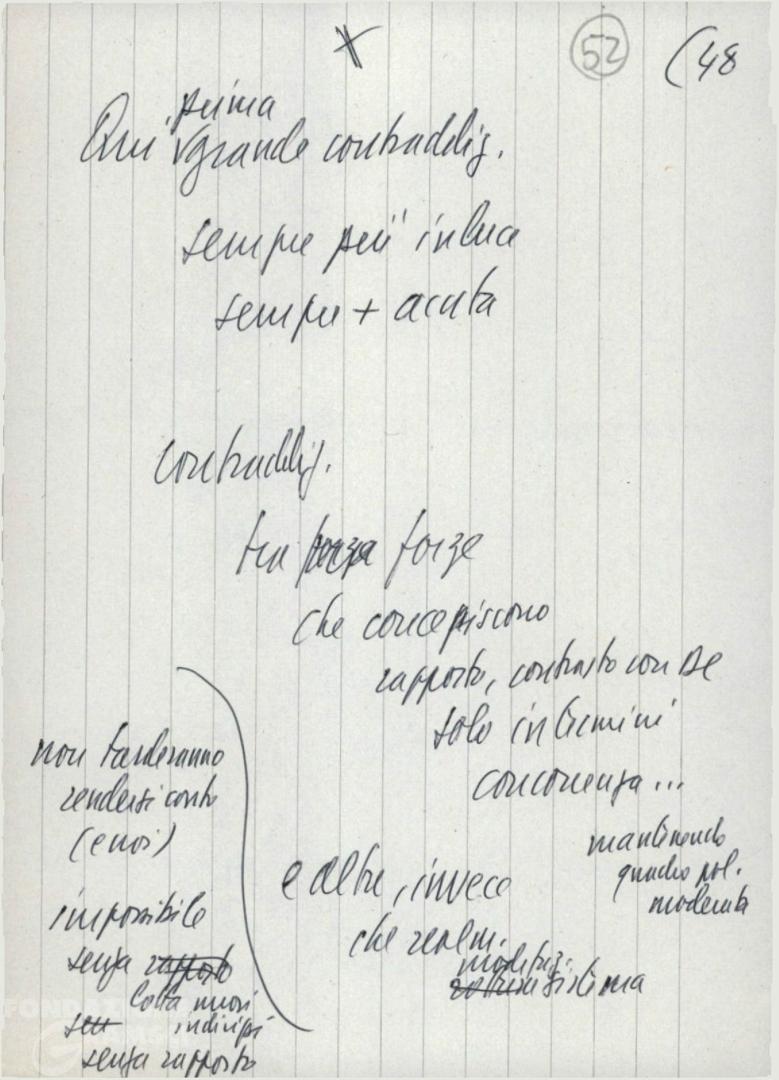 X 52 (48
prima
Qui grande contraddiz.
sempre più in luce
sempre + acuta
contraddiz.
tra forza forze
che concepiscono
rapporto, contrasto con DC
solo in termini
concorrenza...
mantenendo
quadro pol.
moderato
e altre, invece
che realm.
modifiz.
sistema
non tarderanno
rendersi conto
(e noi)
impossibile
senza rapporto
lotta nuovi
sen indirizzi
senza rapporto
FONDAZI